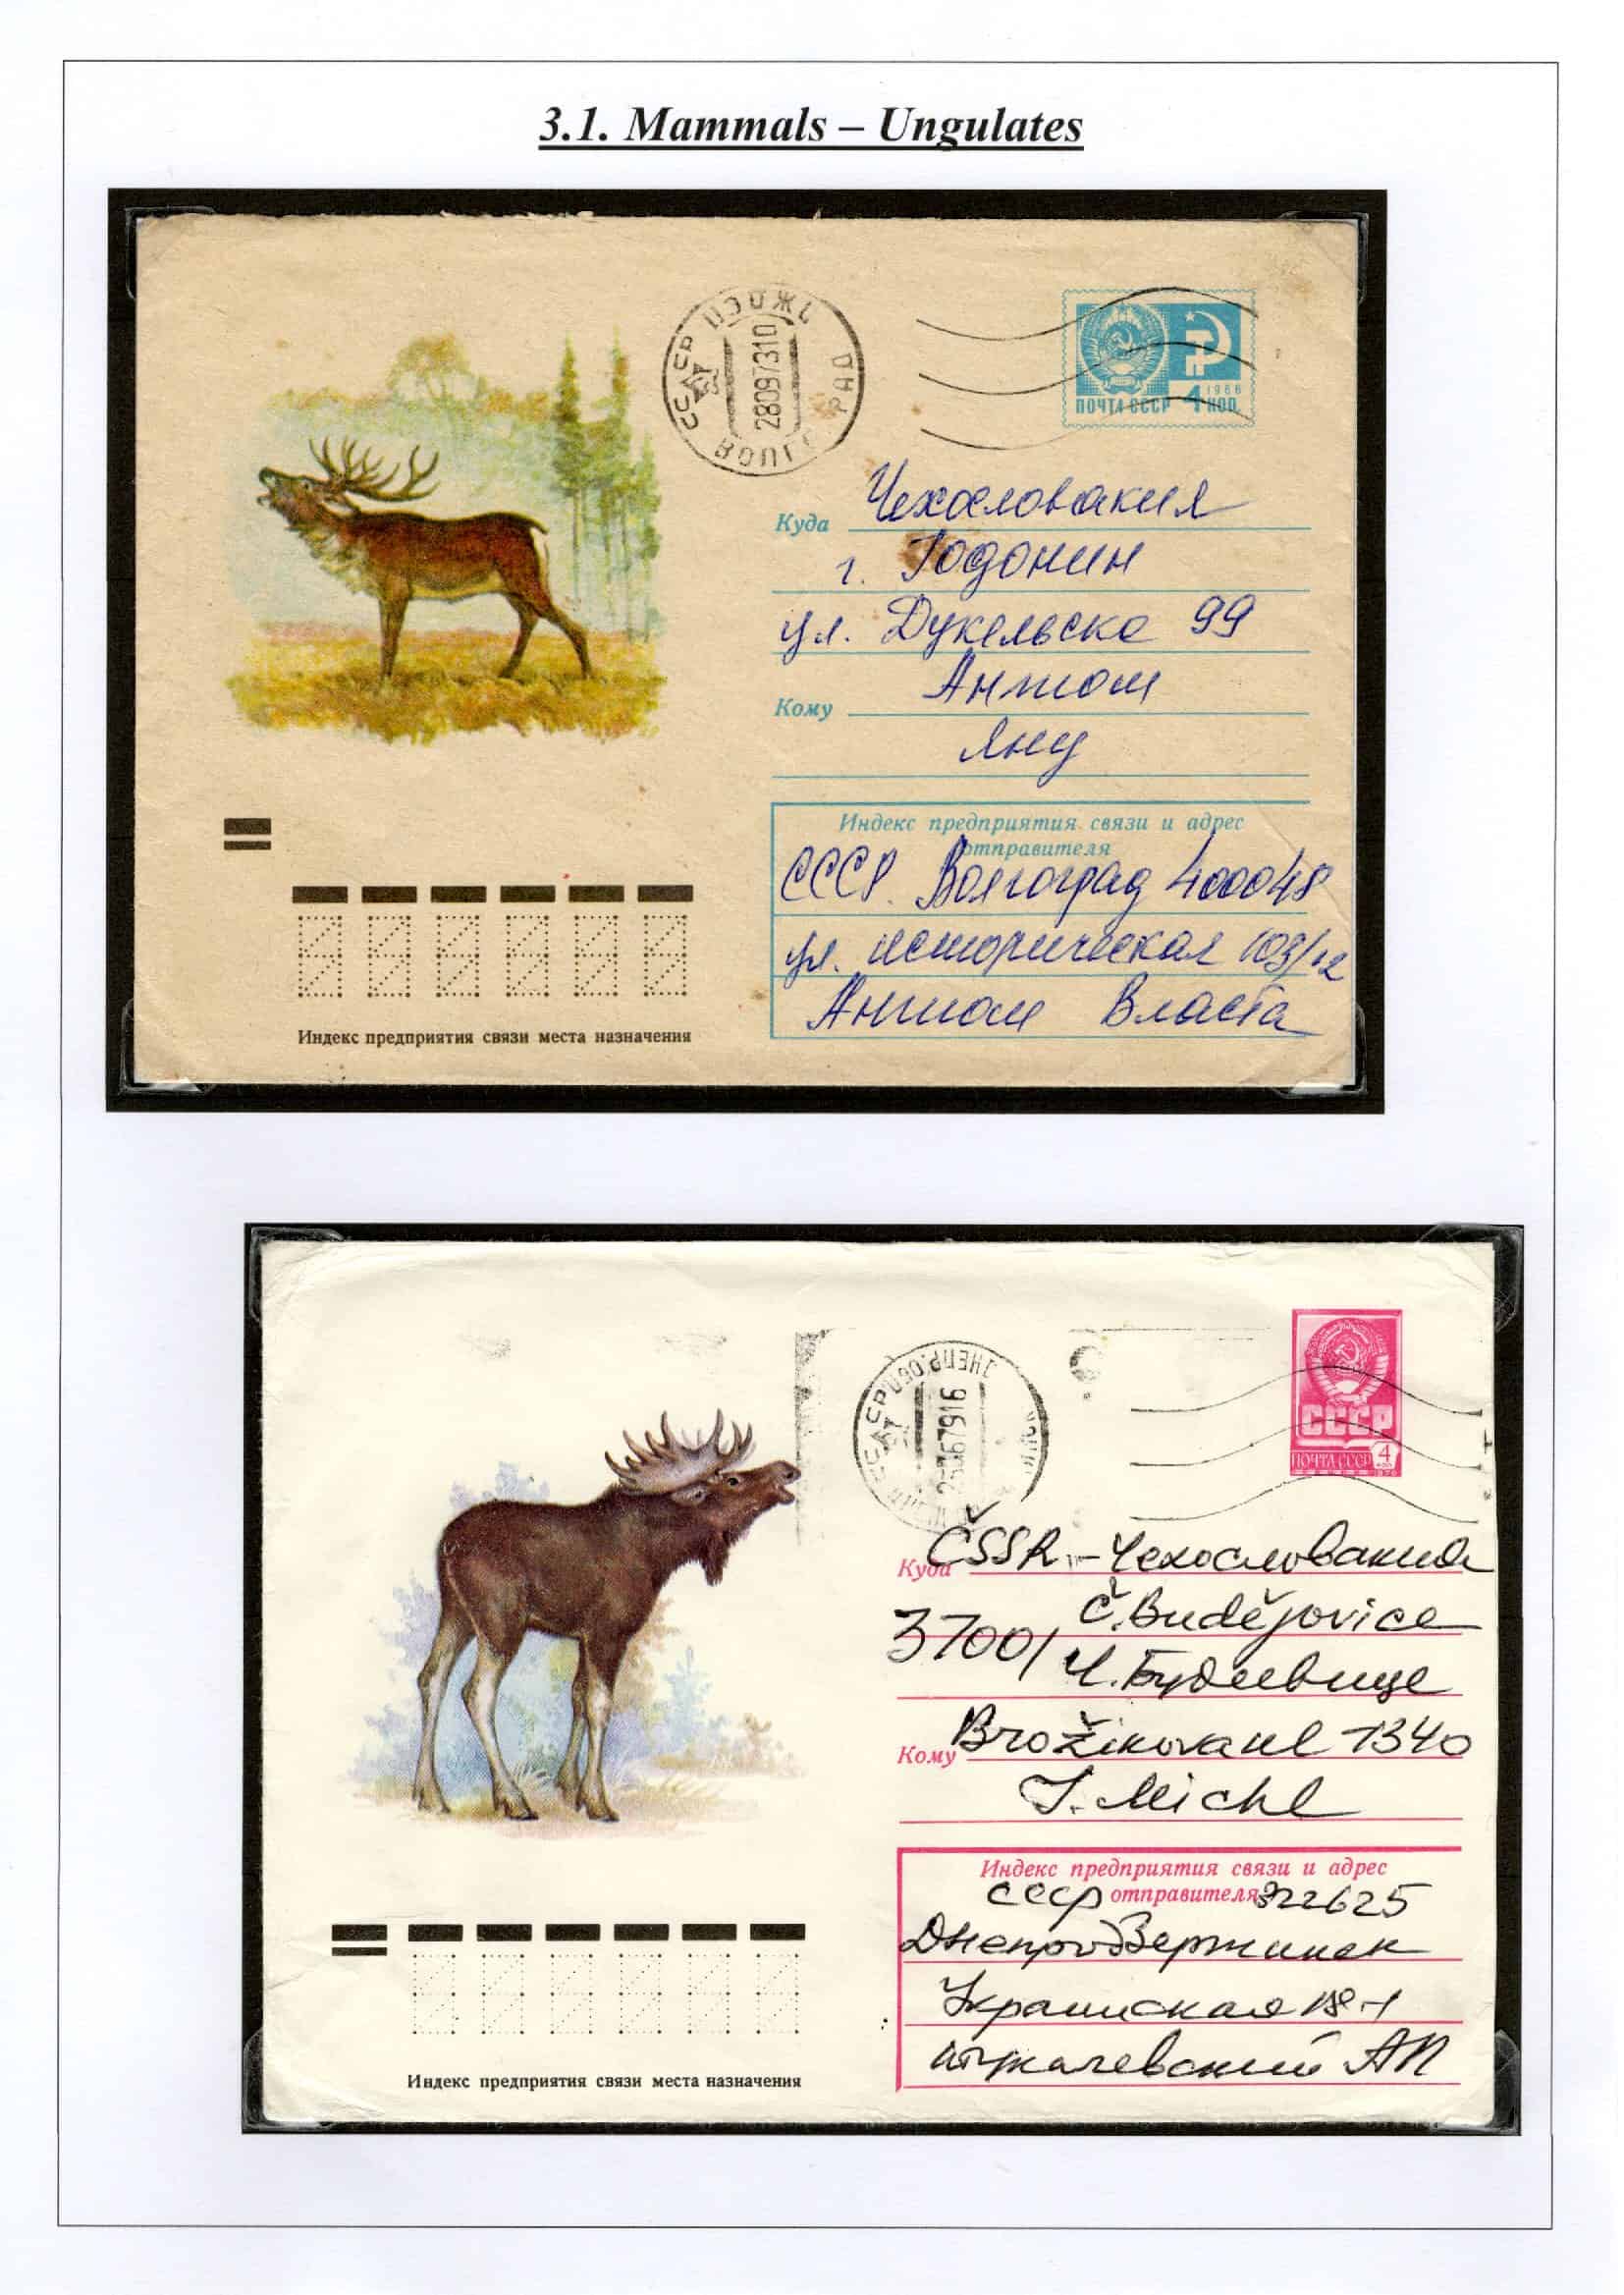 3.1. Mammals – Ungulates
СССР
ВОЛГ РАД
28097310
1966
ПОЧТА СССР 4 КОП
Куда Чехословакия
г. Годонин
ул. Дукельска 99
Кому
Яну
Индекс предприятия связи и адрес
отправителя
СССР. Волгоград 400048
ул. Историческая
Власта
Индекс предприятия связи места назначения
СССР
ПОЧТА СССР 4
Куда ČSSR – Чехословакия
Č. Budějovice
37001 Ч. Будеевице
Кому 1340
J. Michl
Индекс предприятия связи и адрес
СССР отправителя 322625
Днепродзержинск
АП
Индекс предприятия связи места назначения